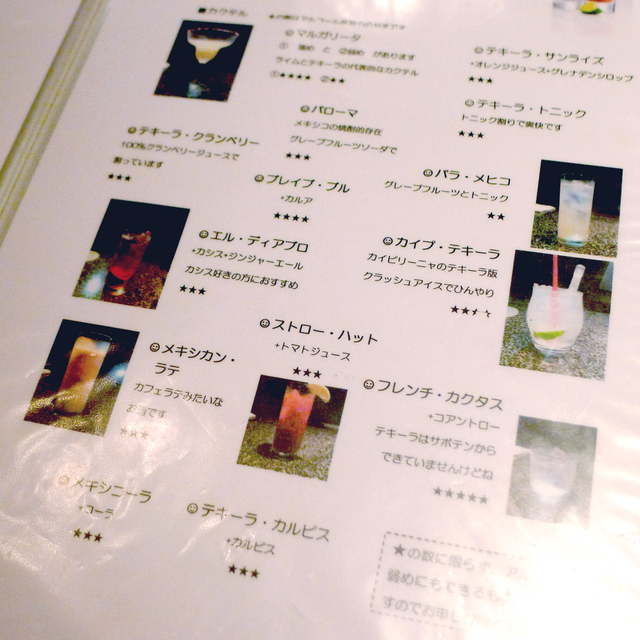 ■カクテル
マルガリータ
① 強め と ②弱め があります
ライムとテキーラの代表的なカクテル
①★★★★ ②★★
テキーラ・サンライズ
+オレンジジュース+グレナデンシロップ
★★★
パローマ
メキシコの焼酎的存在
グレープフルーツソーダで
★★★
テキーラ・トニック
トニック割りで爽快です
★★★
テキーラ・クランベリー
100%クランベリージュースで
割っています
★★★
ブレイブ・ブル
+カルア
★★★★
バラ・メヒコ
グレープフルーツとトニック
★★
エル・ディアブロ
+カシス+ジンジャーエール
カシス好きの方におすすめ
★★★
カイプ・テキーラ
カイピリーニャのテキーラ版
クラッシュアイスでひんやり
ストロー・ハット
+トマトジュース
★★★
メキシカン・
ラテ
カフェラテみたいな
お酒です
★★★
フレンチ・カクタス
+コアントロー
テキーラはサボテンから
できていませんけどね
★★★★★
メキシコーラ
+コーラ
★★★
テキーラ・カルピス
+カルピス
★★★
★の数に限らず
弱めにもできる
すのでお申し